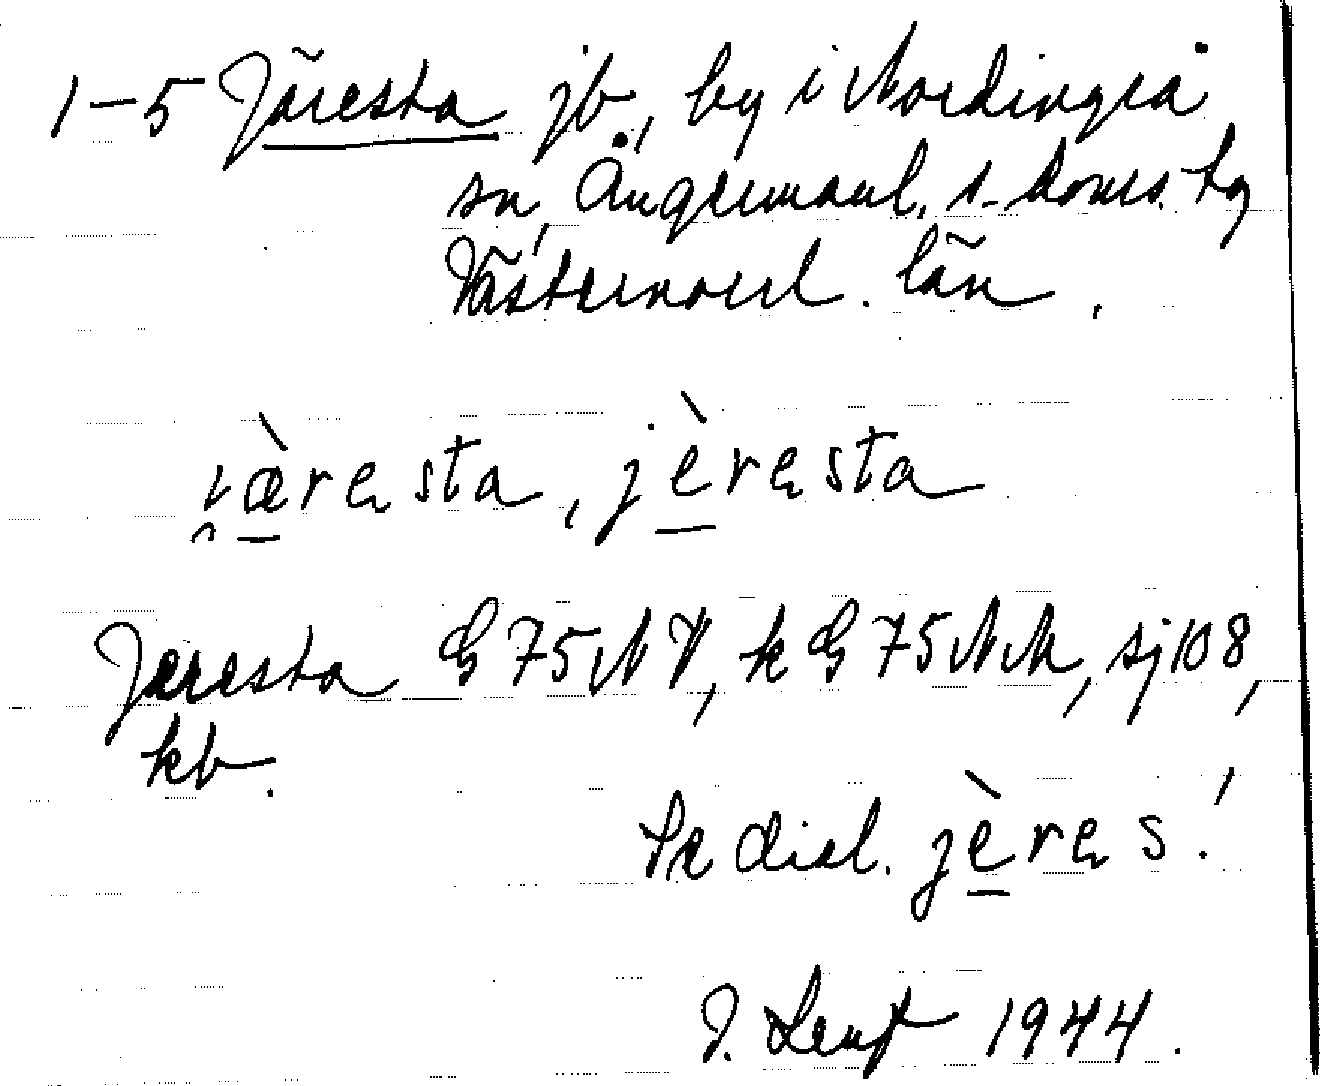 1–5 Järesta jb, by i Nordingrå
sn, Ångermanl. s. doms. tg
Västernorrl. län.
i̯æ̀resta, jèresta
Jæresta G 75 NV, k G 75 NM, sj 108,
kb.
Se dial. jères!
J. Lenf 1944.